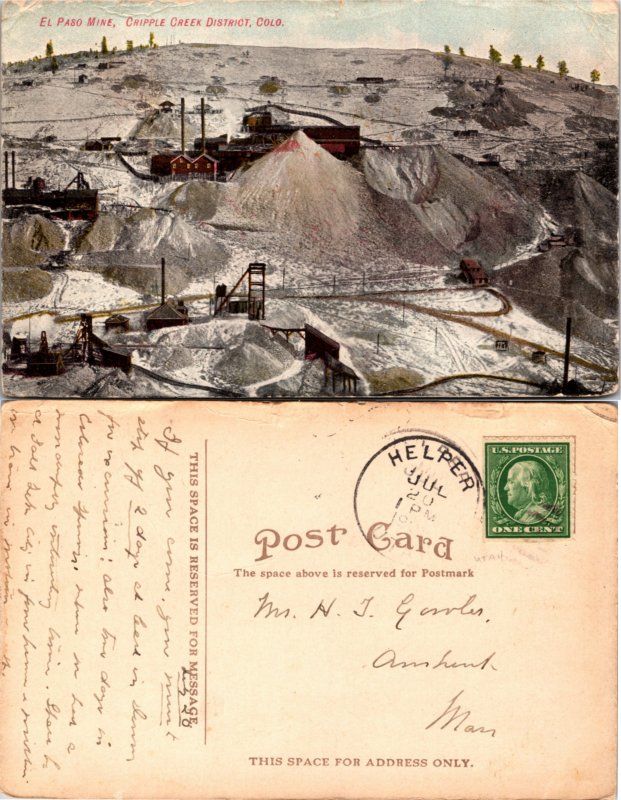 EL PASO MINE, CRIPPLE CREEK DISTRICT, COLO.
HELPER
JUL
20
1 PM
U.S. POSTAGE
ONE CENT
POST CARD
The space above is reserved for Postmark
THIS SPACE IS RESERVED FOR MESSAGE
July 20
If you come, you must
stop off 2 days at least in
for excursions; also two days in
Colorado Springs. Have had a
wonderfully interesting time. Shall be
in Salt Lake City in
Mr. H. T. Cowles,
Amherst
Mass
THIS SPACE FOR ADDRESS ONLY.